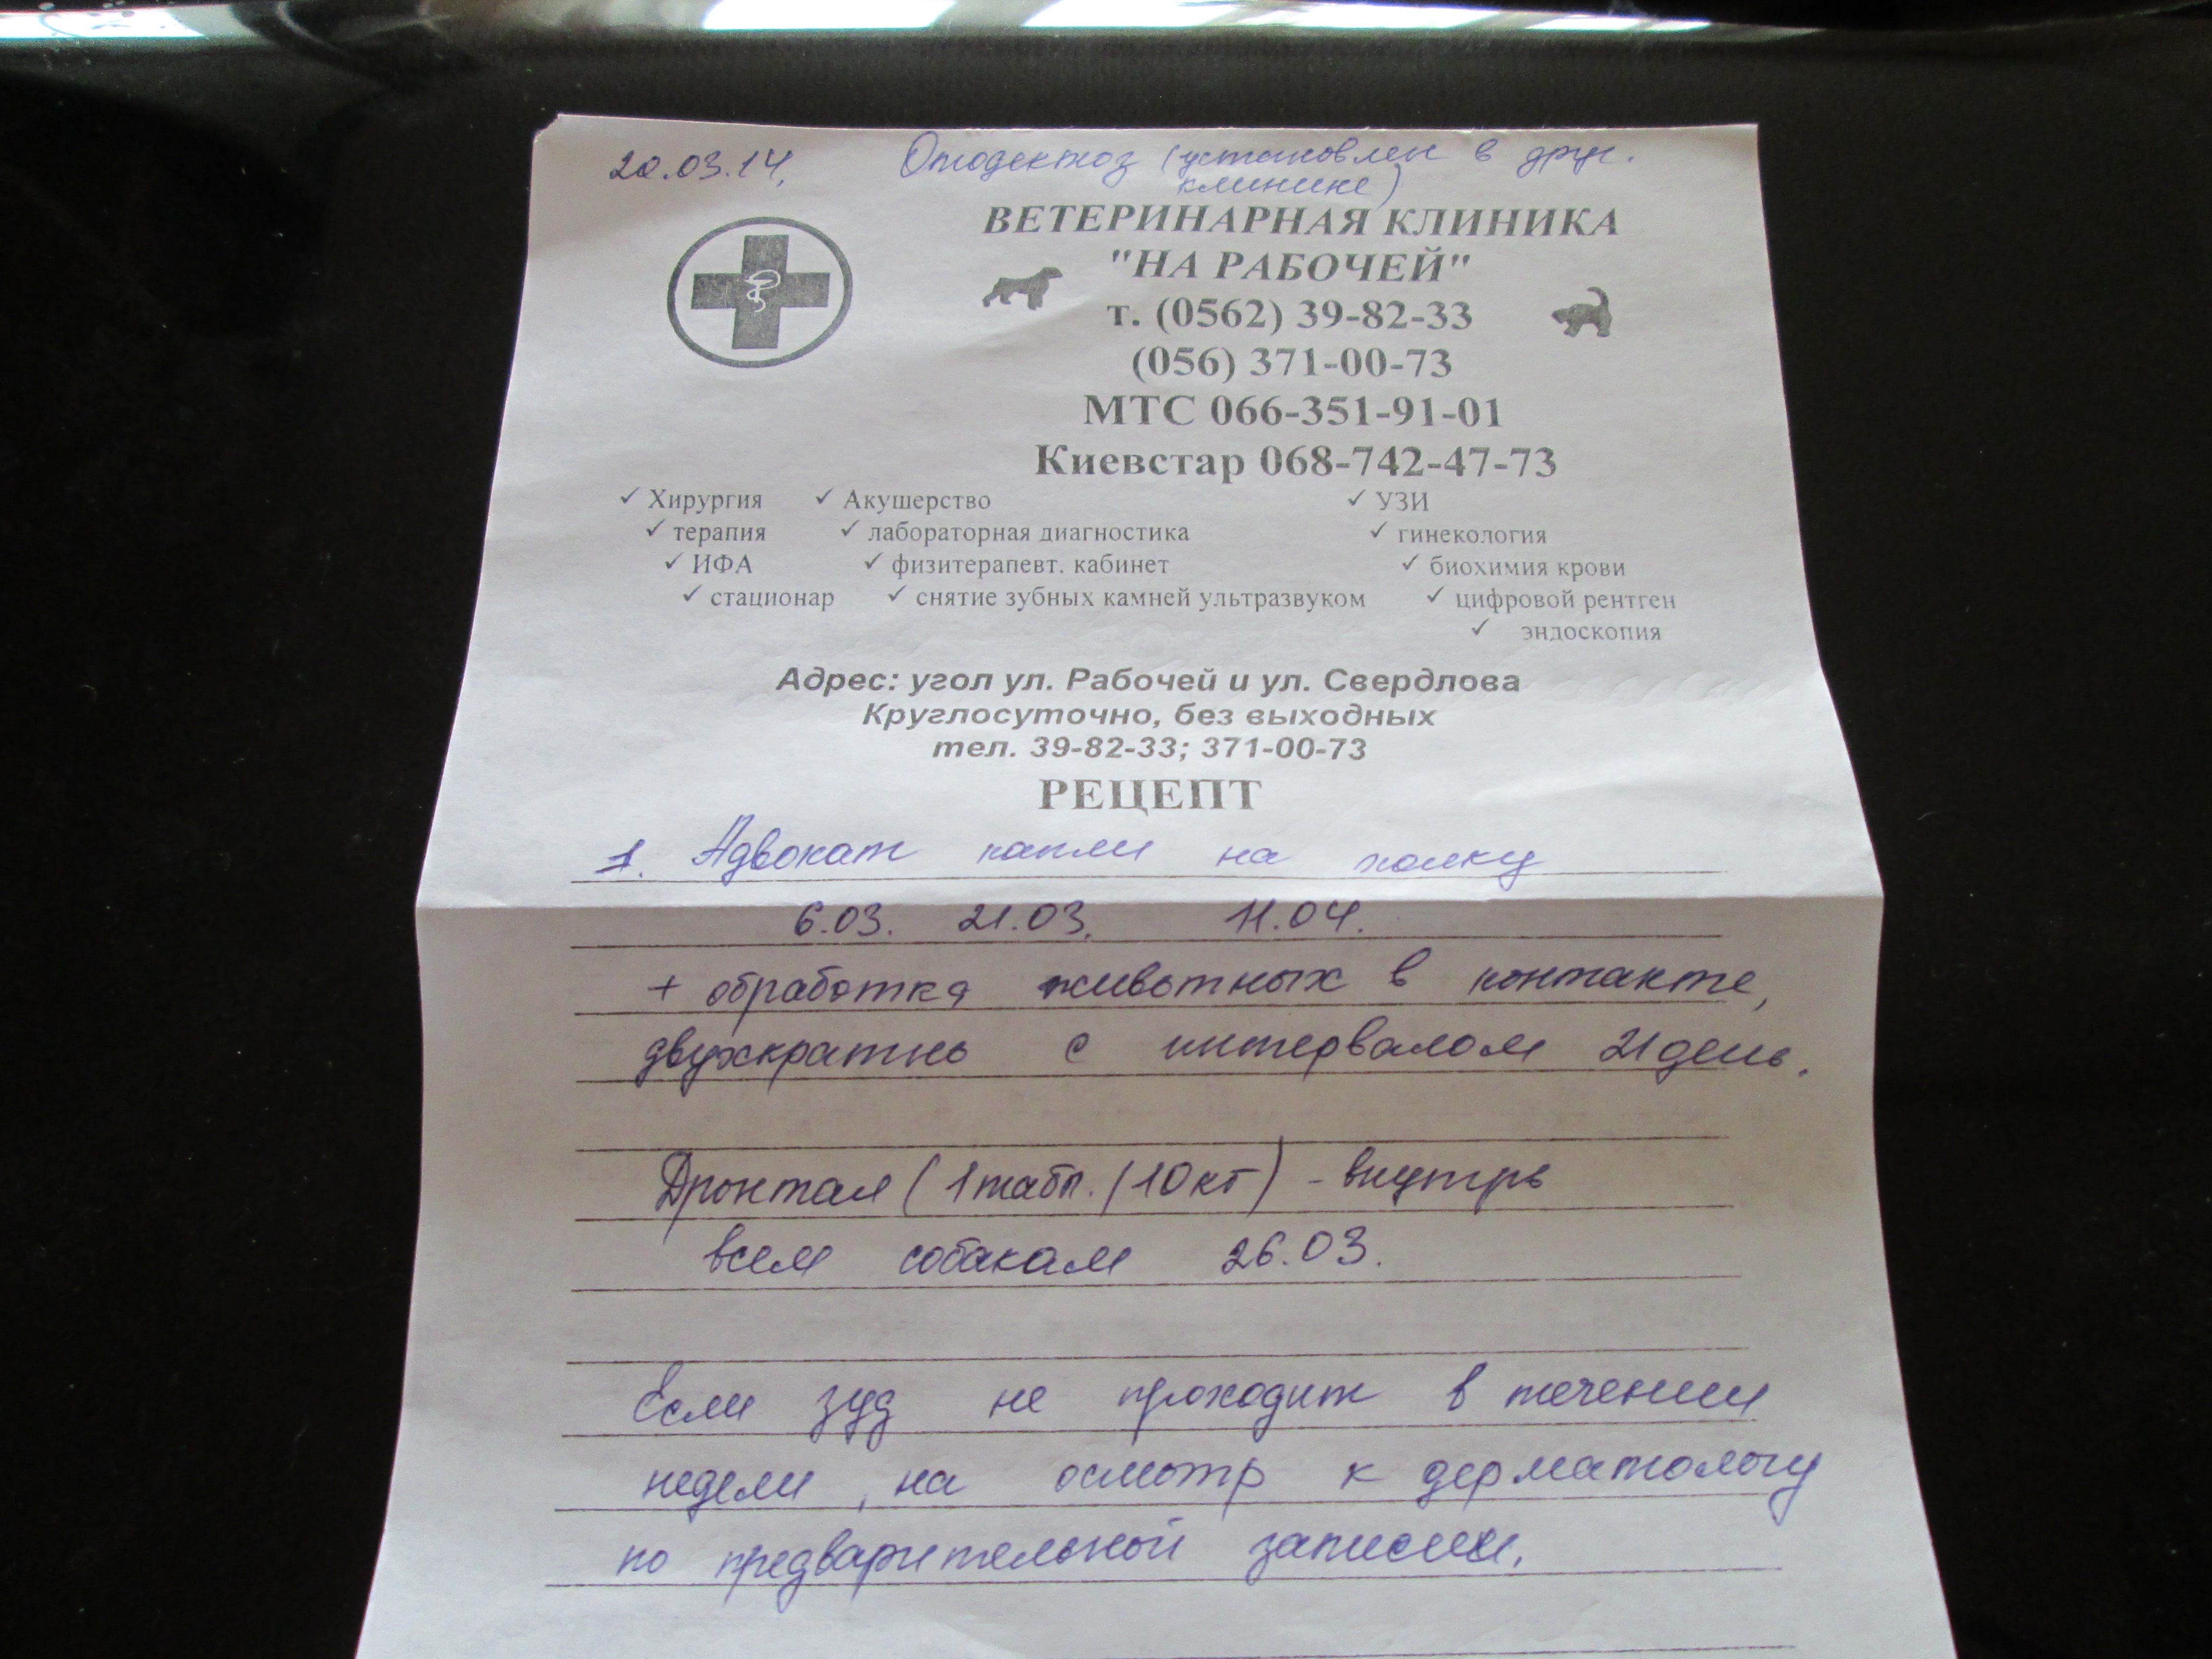 20.03.14. Отодектоз (установлен в друг.
клинике)
ВЕТЕРИНАРНАЯ КЛИНИКА
"НА РАБОЧЕЙ"
т. (0562) 39-82-33
(056) 371-00-73
МТС 066-351-91-01
Киевстар 068-742-47-73
✓ Хирургия ✓ Акушерство ✓ УЗИ
✓ терапия ✓ лабораторная диагностика ✓ гинекология
✓ ИФА ✓ физитерапевт. кабинет ✓ биохимия крови
✓ стационар ✓ снятие зубных камней ультразвуком ✓ цифровой рентген
✓ эндоскопия
Адрес: угол ул. Рабочей и ул. Свердлова
Круглосуточно, без выходных
тел. 39-82-33; 371-00-73
РЕЦЕПТ
1. Адвокат капли на холку
6.03. 21.03. 11.04.
+ обработка животных в контакте,
двухкратно с интервалом 21 день.
Дронтал (1 табл. / 10 кг) - внутрь
всем собакам 26.03.
Если зуд не проходит в течении
недели, на осмотр к дерматологу
по предварительной записи.